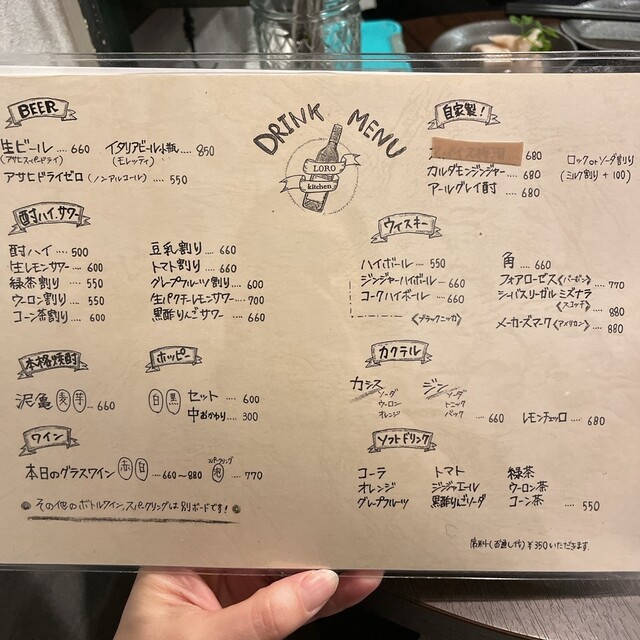 DRINK MENU
LORO
kitchen
BEER
生ビール .... 660
(アサヒスーパードライ)
イタリアビール小瓶 .... 850
(モレッティ)
アサヒドライゼロ (ノンアルコール) .... 550
酎ハイ.サワー
酎ハイ .... 500
生レモンサワー .... 600
緑茶割り .... 550
ウーロン割り .... 550
コーン茶割り .... 600
豆乳割り .... 660
トマト割り .... 660
グレープフルーツ割り .... 600
生パクチーレモンサワー .... 700
黒酢りんごサワー .... 660
本格焼酎
泥亀 麦 芋 .. 660
ホッピー
白 黒 セット .... 600
中おかわり .... 300
ワイン
本日のグラスワイン 赤 白 .... 660~880
スパークリング
泡 .... 770
その他のボトルワイン、スパークリングは別ボードです!
自家製!
680
カルダモンジンジャー .... 680
アールグレイ酎 .... 680
ロック or ソーダ割り
(ミルク割り + 100)
ウィスキー
ハイボール .... 550
ジンジャーハイボール .... 660
コークハイボール .... 660
《ブラックニッカ》
角 .... 660
フォアローゼス《バーボン》 .... 770
シーバスリーガル ミズナラ
《スコッチ》 .... 880
メーカーズマーク《アメリカン》 .... 880
カクテル
カシス
ソーダ
ウーロン
オレンジ
ジン
ソーダ
トニック
バック
.... 660
レモンチェッロ .... 680
ソフトドリンク
コーラ
オレンジ
グレープフルーツ
トマト
ジンジャエール
黒酢りんごソーダ
緑茶
ウーロン茶
コーン茶 .... 550
席料(お通し代)¥350いただきます.